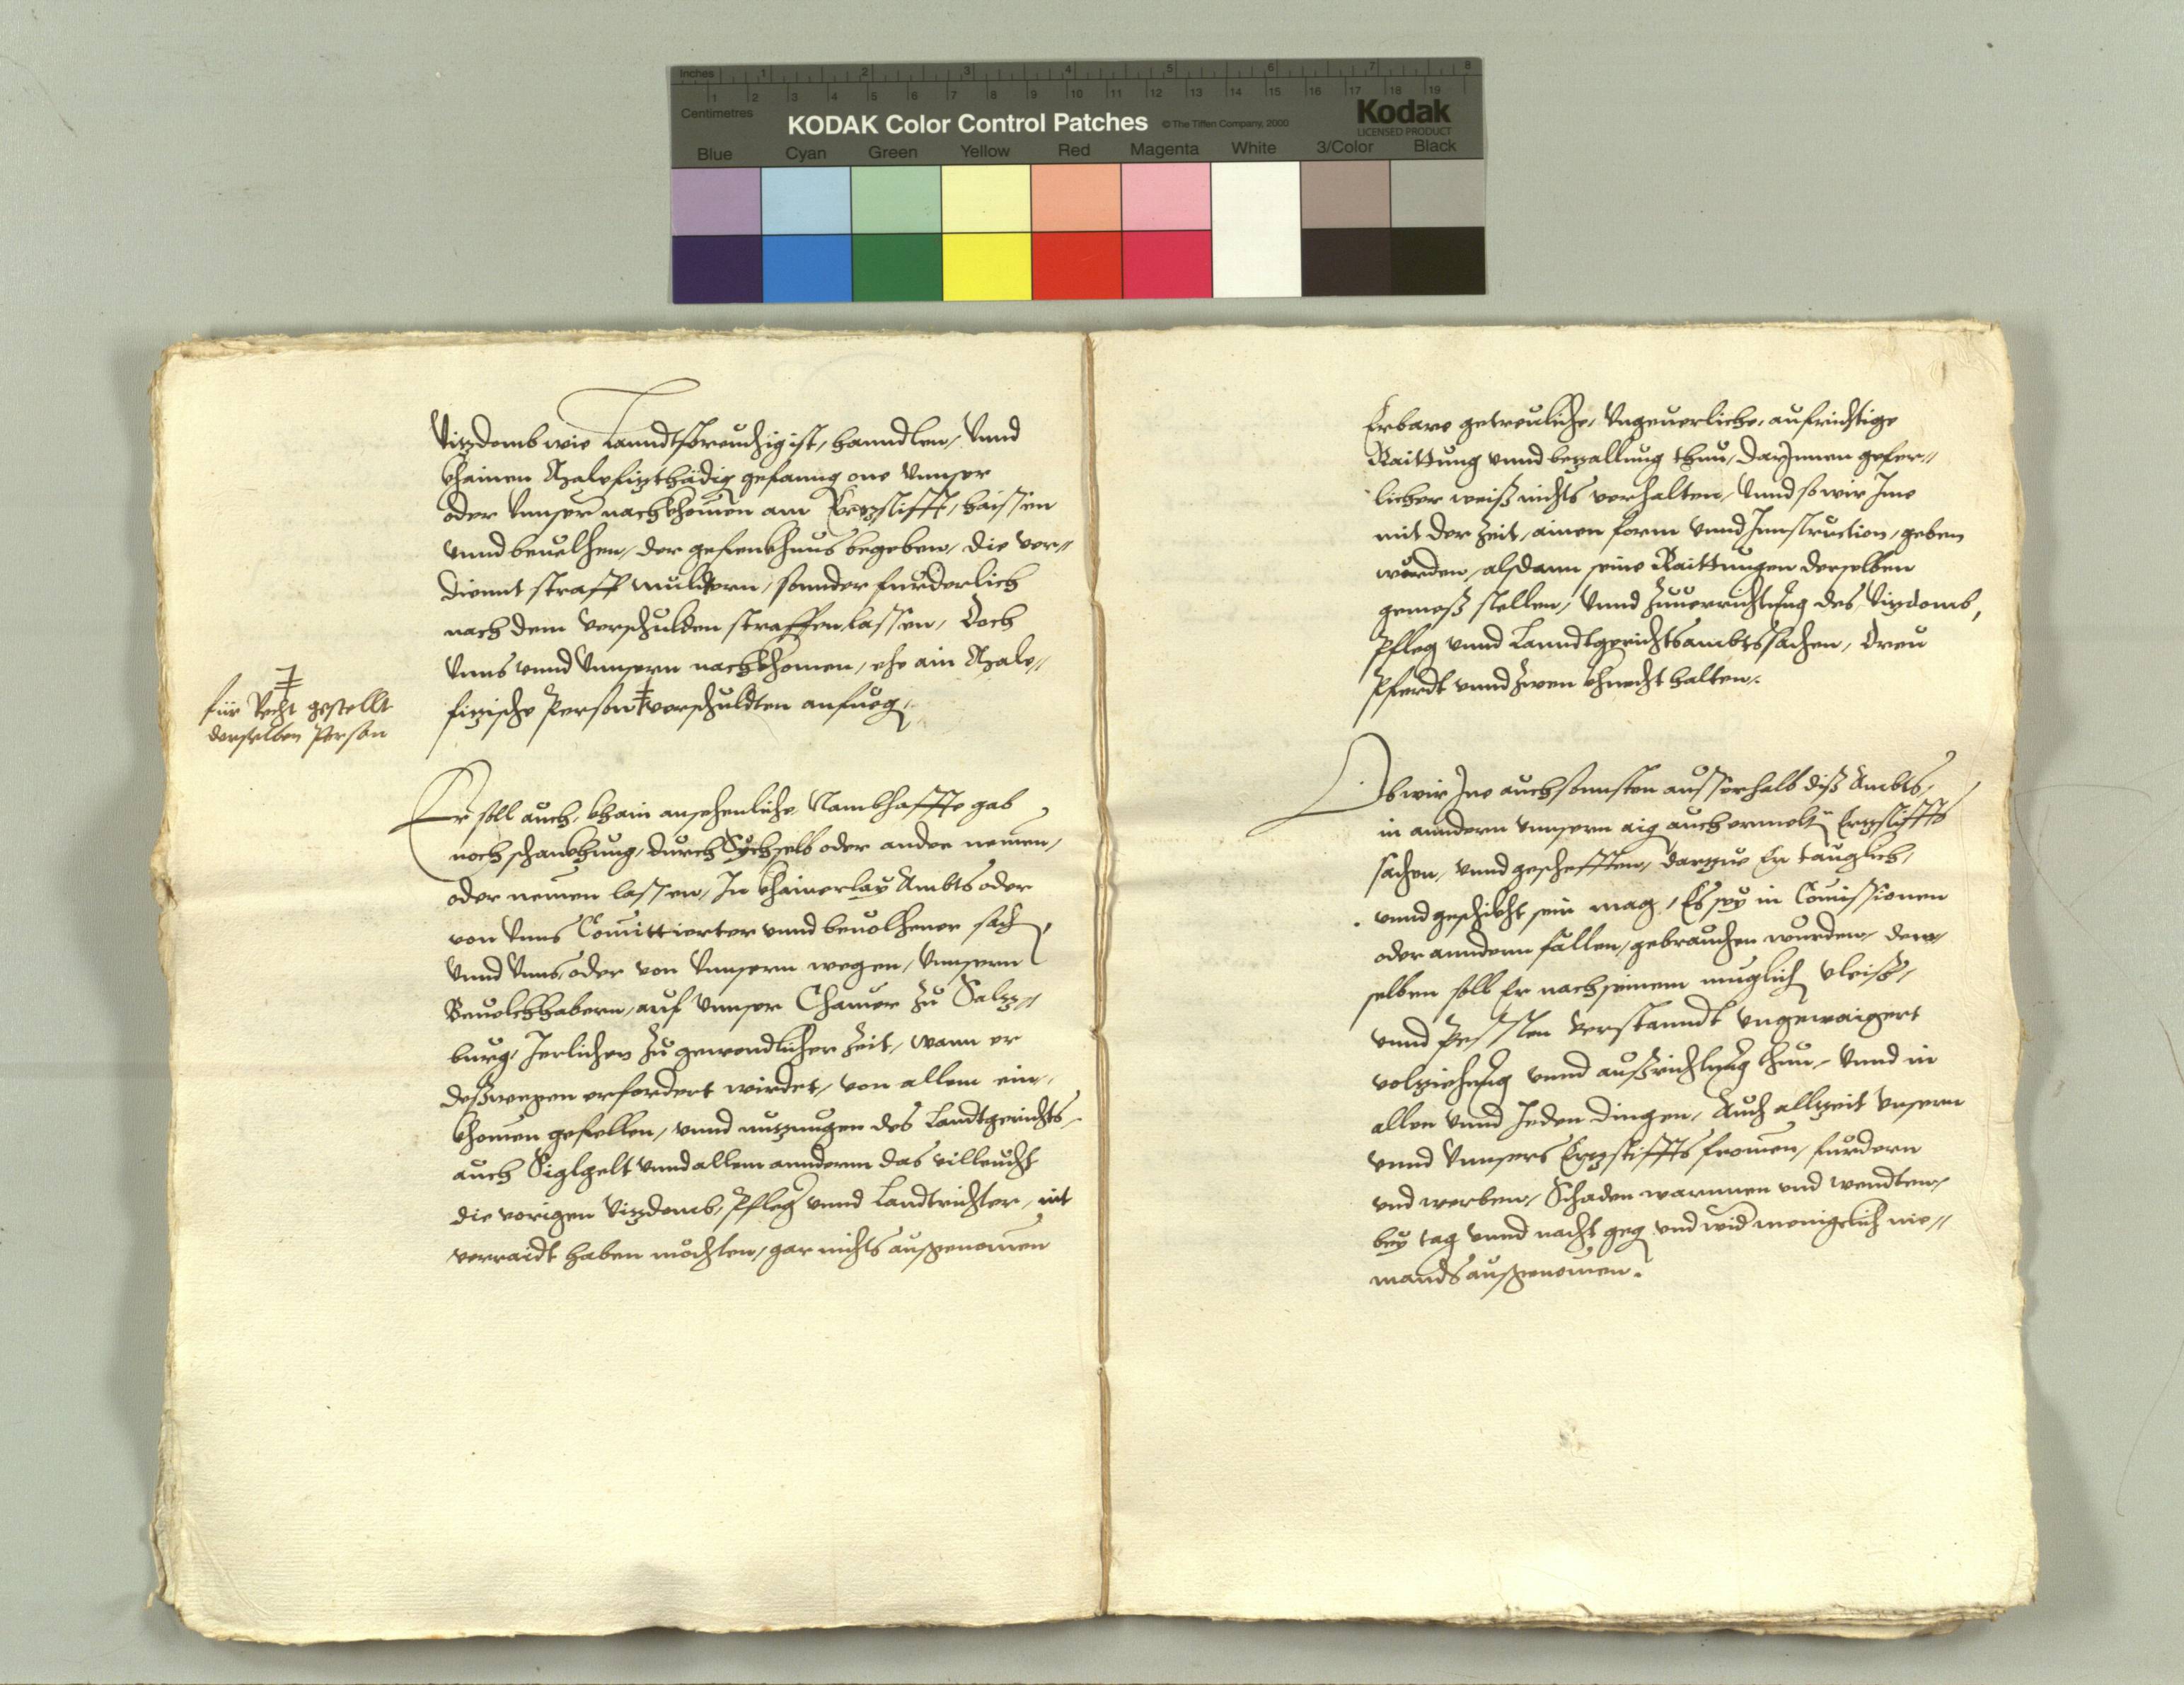 Inches 1 2 3 4 5 6 7 8
Centimetres 1 2 3 4 5 6 7 8 9 10 11 12 13 14 15 16 17 18 19
KODAK Color Control Patches © The Tiffen Company, 2000
Kodak
LICENSED PRODUCT
Blue Cyan Green Yellow Red Magenta White 3/Color Black
Vizdomb wie Lanndtsbreuchig ist, hanndlen, Vnnd
khainen Malefizthädig gefanng one Vnnser
oder Vnnser nachkhomen am Erzstifft, haissen
vnnd beuelhen, der gefenkhnus begeben, die ver=
diennt straff muldern, sonnder furderlich
nach dem verschulden straffen lassen, Doch
Vnns vnnd Vnnsern nachkhomen, ehe ain Male=
fizische Person ‡ verschuldten anfueg,
‡
für Recht gestellt
derselben Person
Er soll auch, khain ansehenliche Nambhaffte gab
noch schankhung, durch Sych selb oder ander nemen,
oder nemen lassen, In khainerlay Ambts oder
von Vnns Comittierter vnnd beuolhener sach,
Vnnd Vnns, oder von Vnnsern wegen, Vnnsern
Beuelchhabern, auf Vnnser Chamer zu Salz=
burg, Jerlichen zu gewondlicher Zeit, wann er
desswegen erfordert wirdet, von allem ein=
khomen gefellen, vnnd nuzungen des Landtgerichts
auch Siglgelt vnnd allem annderm das villeucht
die vorigen Vizdomb, Pfleg vnnd Landtrichter, nit
verraidt haben möchten, gar nichts aussgenomen
Erbare getreuliche, Vngeuerliche, aufrichtige
Raittung vnnd bezallung thun, darInnen gefer=
licher weiß nichts verhalten, Vnnd so wir Ime
mit der Zeit, ainen form vnnd Innstruction, geben
wurden, alsdann seine Raittungen derselben
gemeß stellen, Vnnd Zuuerrichtung des Vizdomb,
Pfleg vnnd Lanndtgerichtsambtssachen, Dreu
Pferdt vnnd Zwen khnecht halten.
Ob wir Ine auch sonnsten ausserhalb diß Ambts,
in anndern vnnsern aig auch ermelts Erzstiffts
sachen, vnnd geschefften, darzue Er tauglich,
vnnd geschikht sein mag, Es sey in Comissionen
oder anndern fällen, gebrauchen wurden, dem=
selben soll Er nach seinem muglich vleiß,
vnnd Pessten Verstanndt vngewaigert
volziehung vnnd außrichtung thun, Vnnd in
allen vnnd Jeden dingen, Auch allzeit Vnsern
vnnd Vnnsers Erzstiffts fromen, furdern
vnd werben, Schaden warnnen vnd wendten,
bey tag vnnd nacht geg vnd wid menigelich nie=
mands außgenomen.